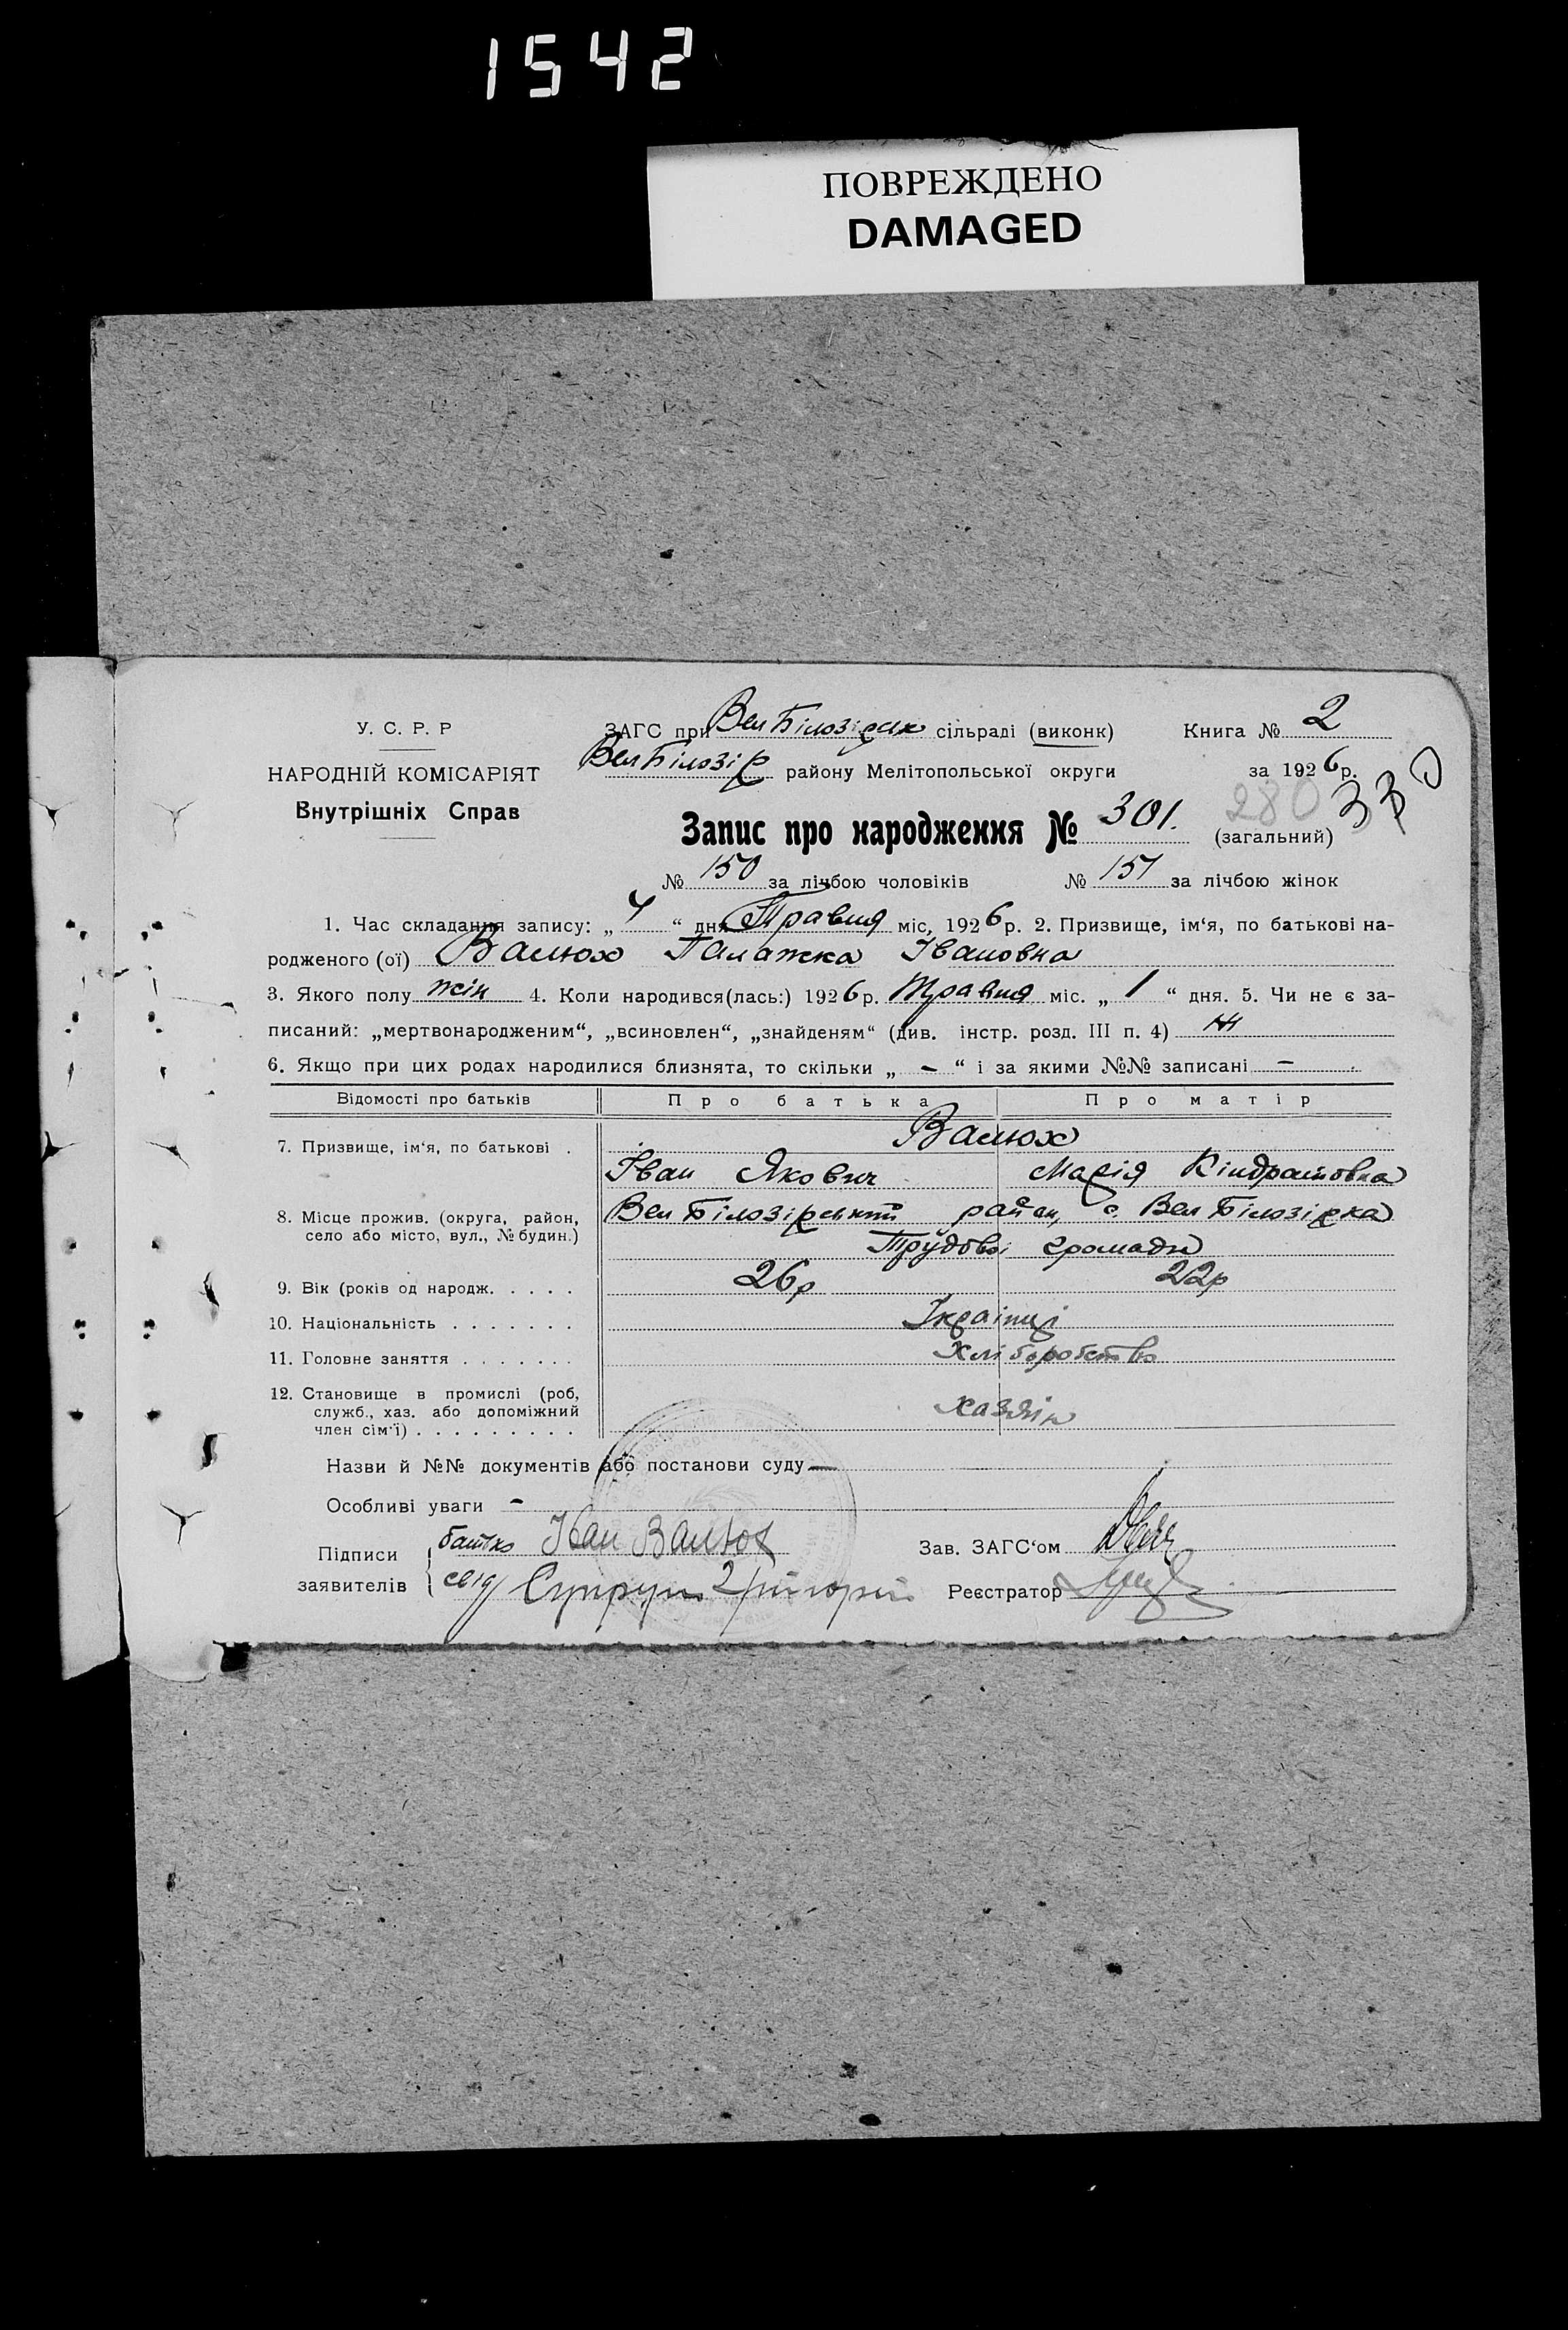 1542
ПОВРЕЖДЕНО
DAMAGED
У. С. Р. Р
НАРОДНІЙ КОМІСАРІЯТ
Внутрішніх Справ
ЗАГС при Вел Білозірськ сільраді (виконк) Книга № 2
Вел Білозір району Мелітопольської округи за 1926 р.
Запис про народження № 301. (загальний) 280 330
№ 150 за лічбою чоловіків № 151 за лічбою жінок
1. Час складання запису: „ 4 “ дня Травня міс, 1926 р. 2. Призвище, ім‘я, по батькові на-
родженого (ої) Валюх Палажка Івановна
3. Якого полу жін 4. Коли народився(лась:) 1926 р. Травня міс. „ 1 “ дня. 5. Чи не є за-
писаний: „мертвонародженим“, „всиновлен“, „знайденям“ (див. інстр. розд. III п. 4) ні
6. Якщо при цих родах народилися близнята, то скільки „ - “ і за якими №№ записані -
Відомості про батьків Про батька Про матір
7. Призвище, ім‘я, по батькові . Валюх
Іван Якович Марія Кіндратовна
8. Місце прожив. (округа, район, село або місто, вул., № будин.) Вел Білозірський район, с. Вел Білозірка
Трудової громади
9. Вік (років од народж. . . . . 26 р 22 р
10. Національність . . . . . . . Українці
11. Головне заняття . . . . . . . Хліборобство
12. Становище в промислі (роб, служб., хаз. або допоміжний член сім‘ї) . . . . . . . . . хазяїн
Назви й №№ документів або постанови суду —
Особливі уваги -
Підписи заявителів { батько Іван Валюх Зав. ЗАГС‘ом
свід Супрун Григорій Реєстратор